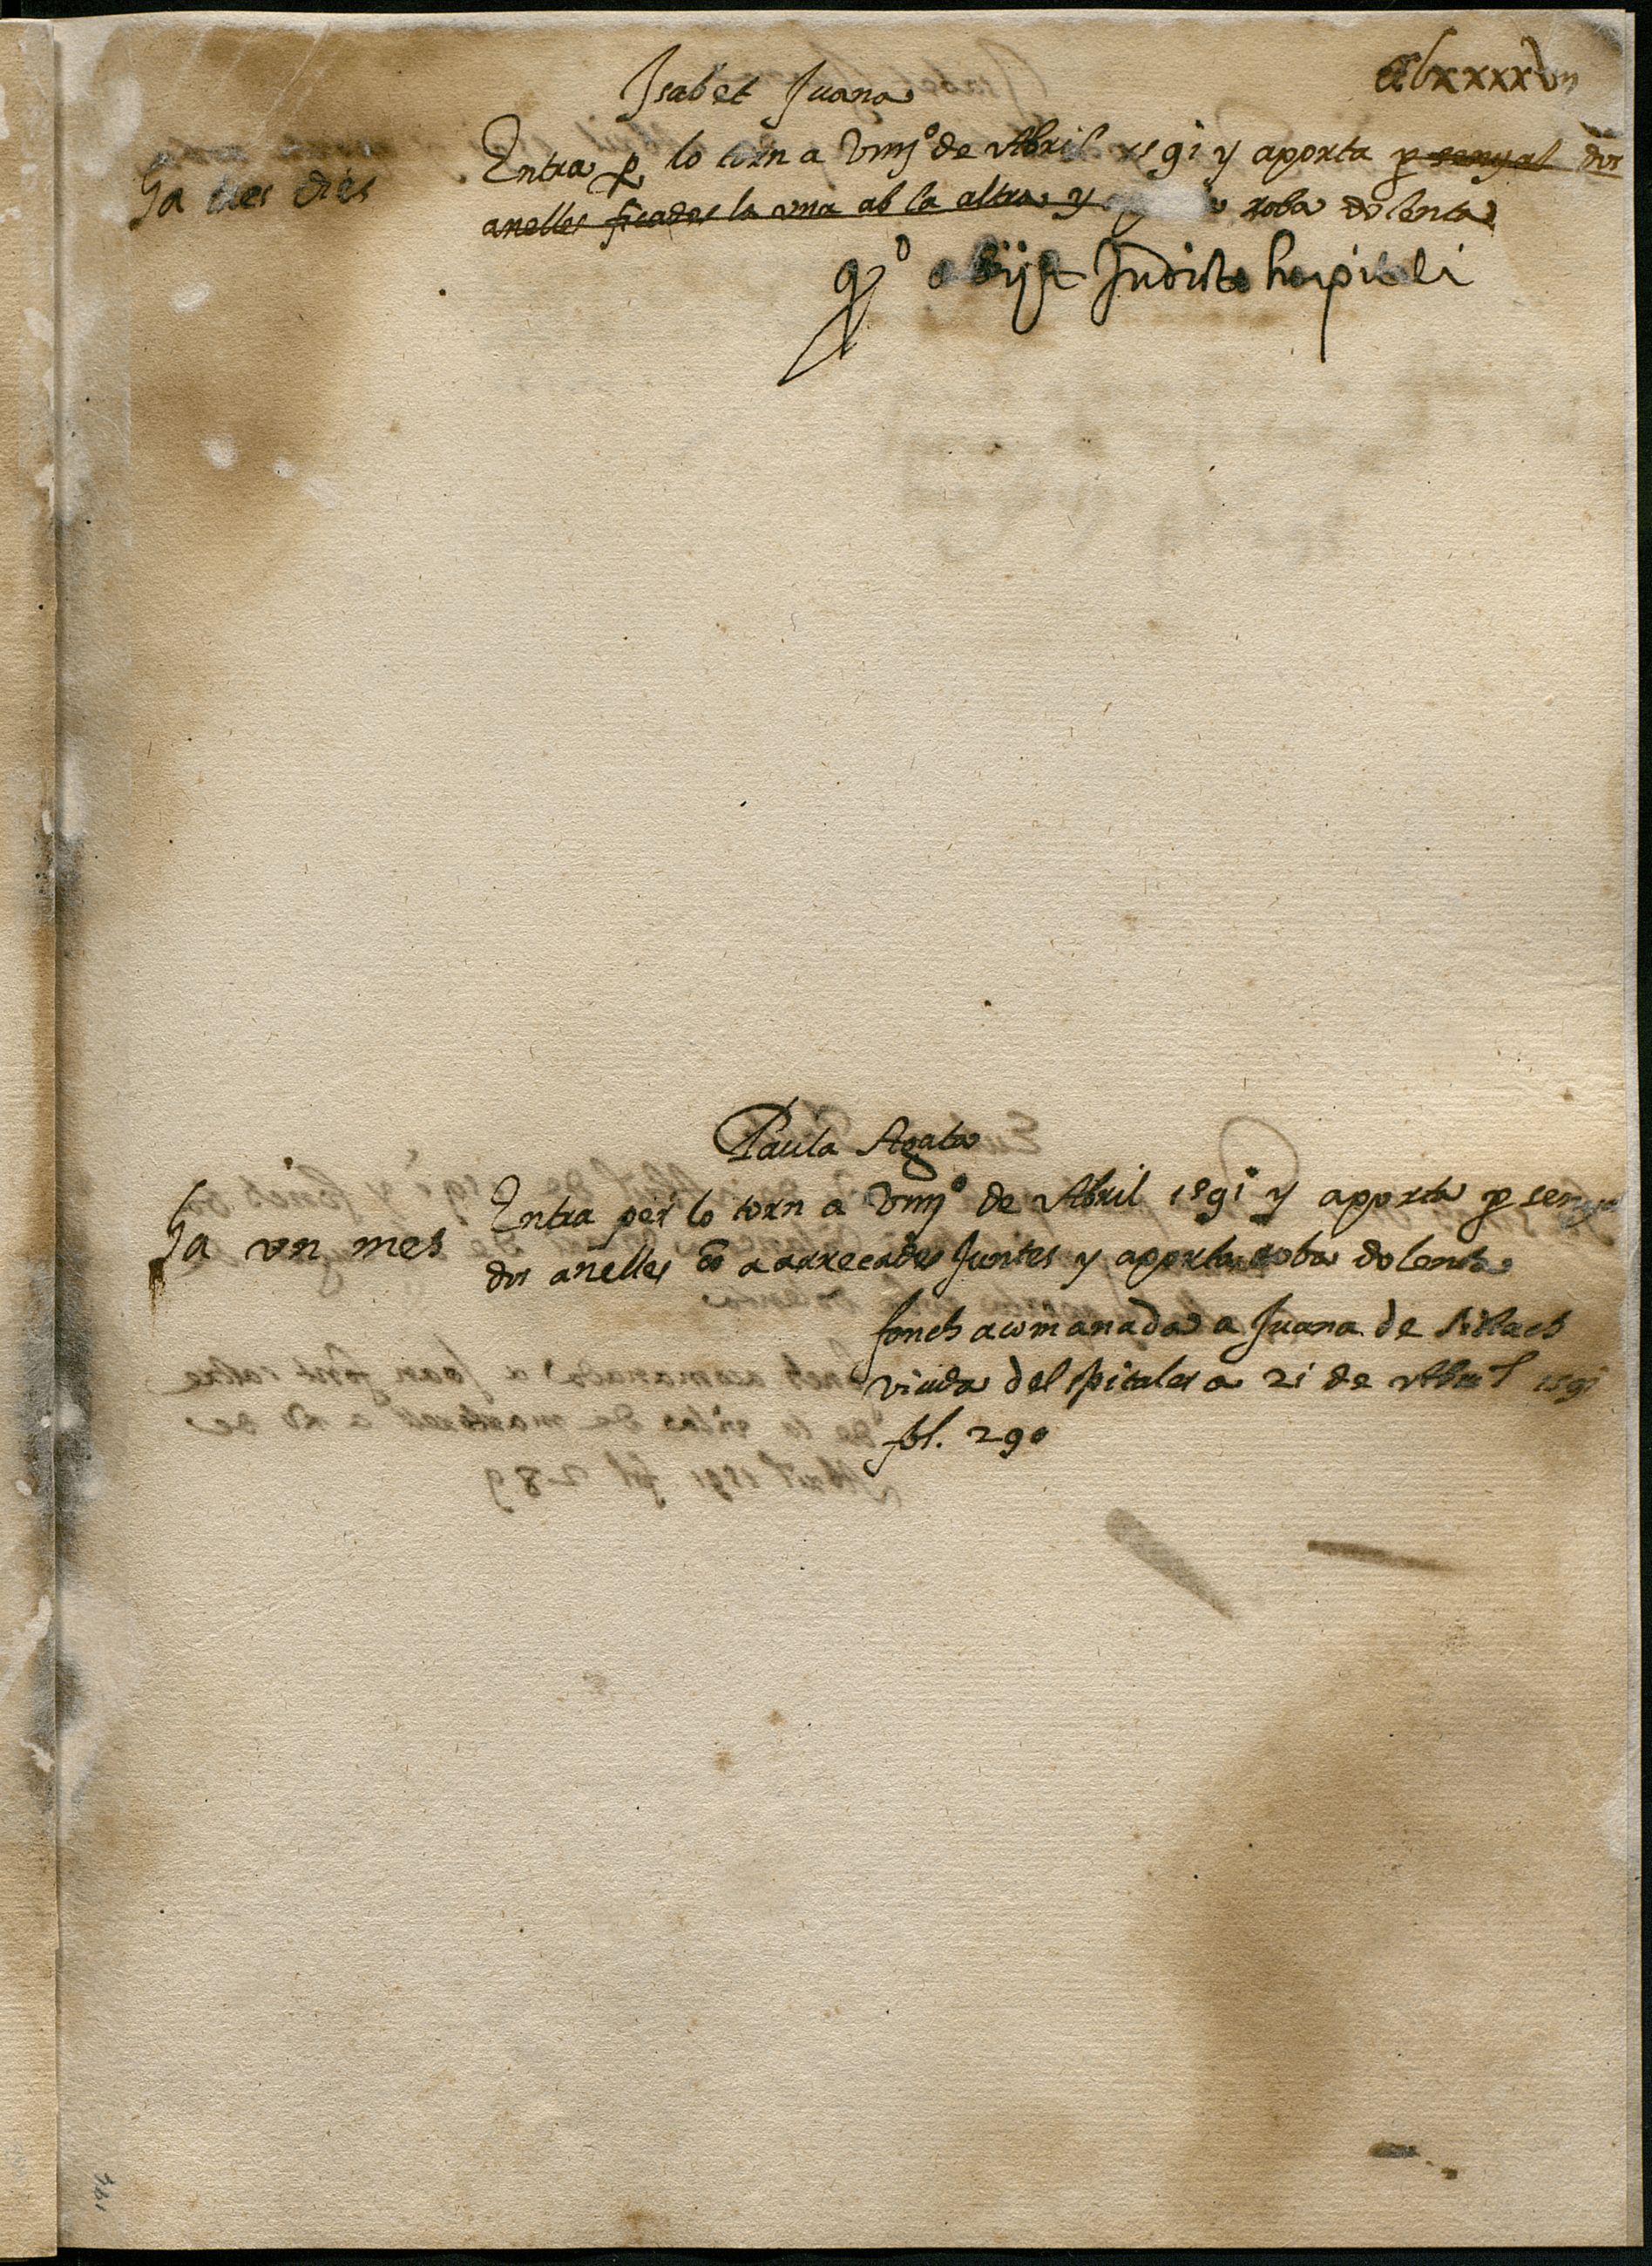 Isabet Juana
Ha tres dies
Entra p lo torn a viiijº de Abril 1591 y aporta p senyal dos
anelles ficades la una ab la altra y roba dolenta
qº obijt Indicto hospitali
Paula Agata
Ha un mes
Entra per lo torn a viiijº de Abril 1591 y apporta p senyal
dos anelles co a arrecades Juntes y apporta roba dolenta
fonch acomanada a Juana de
viuda del spitalet a 21 de Abril 1591
fol. 290